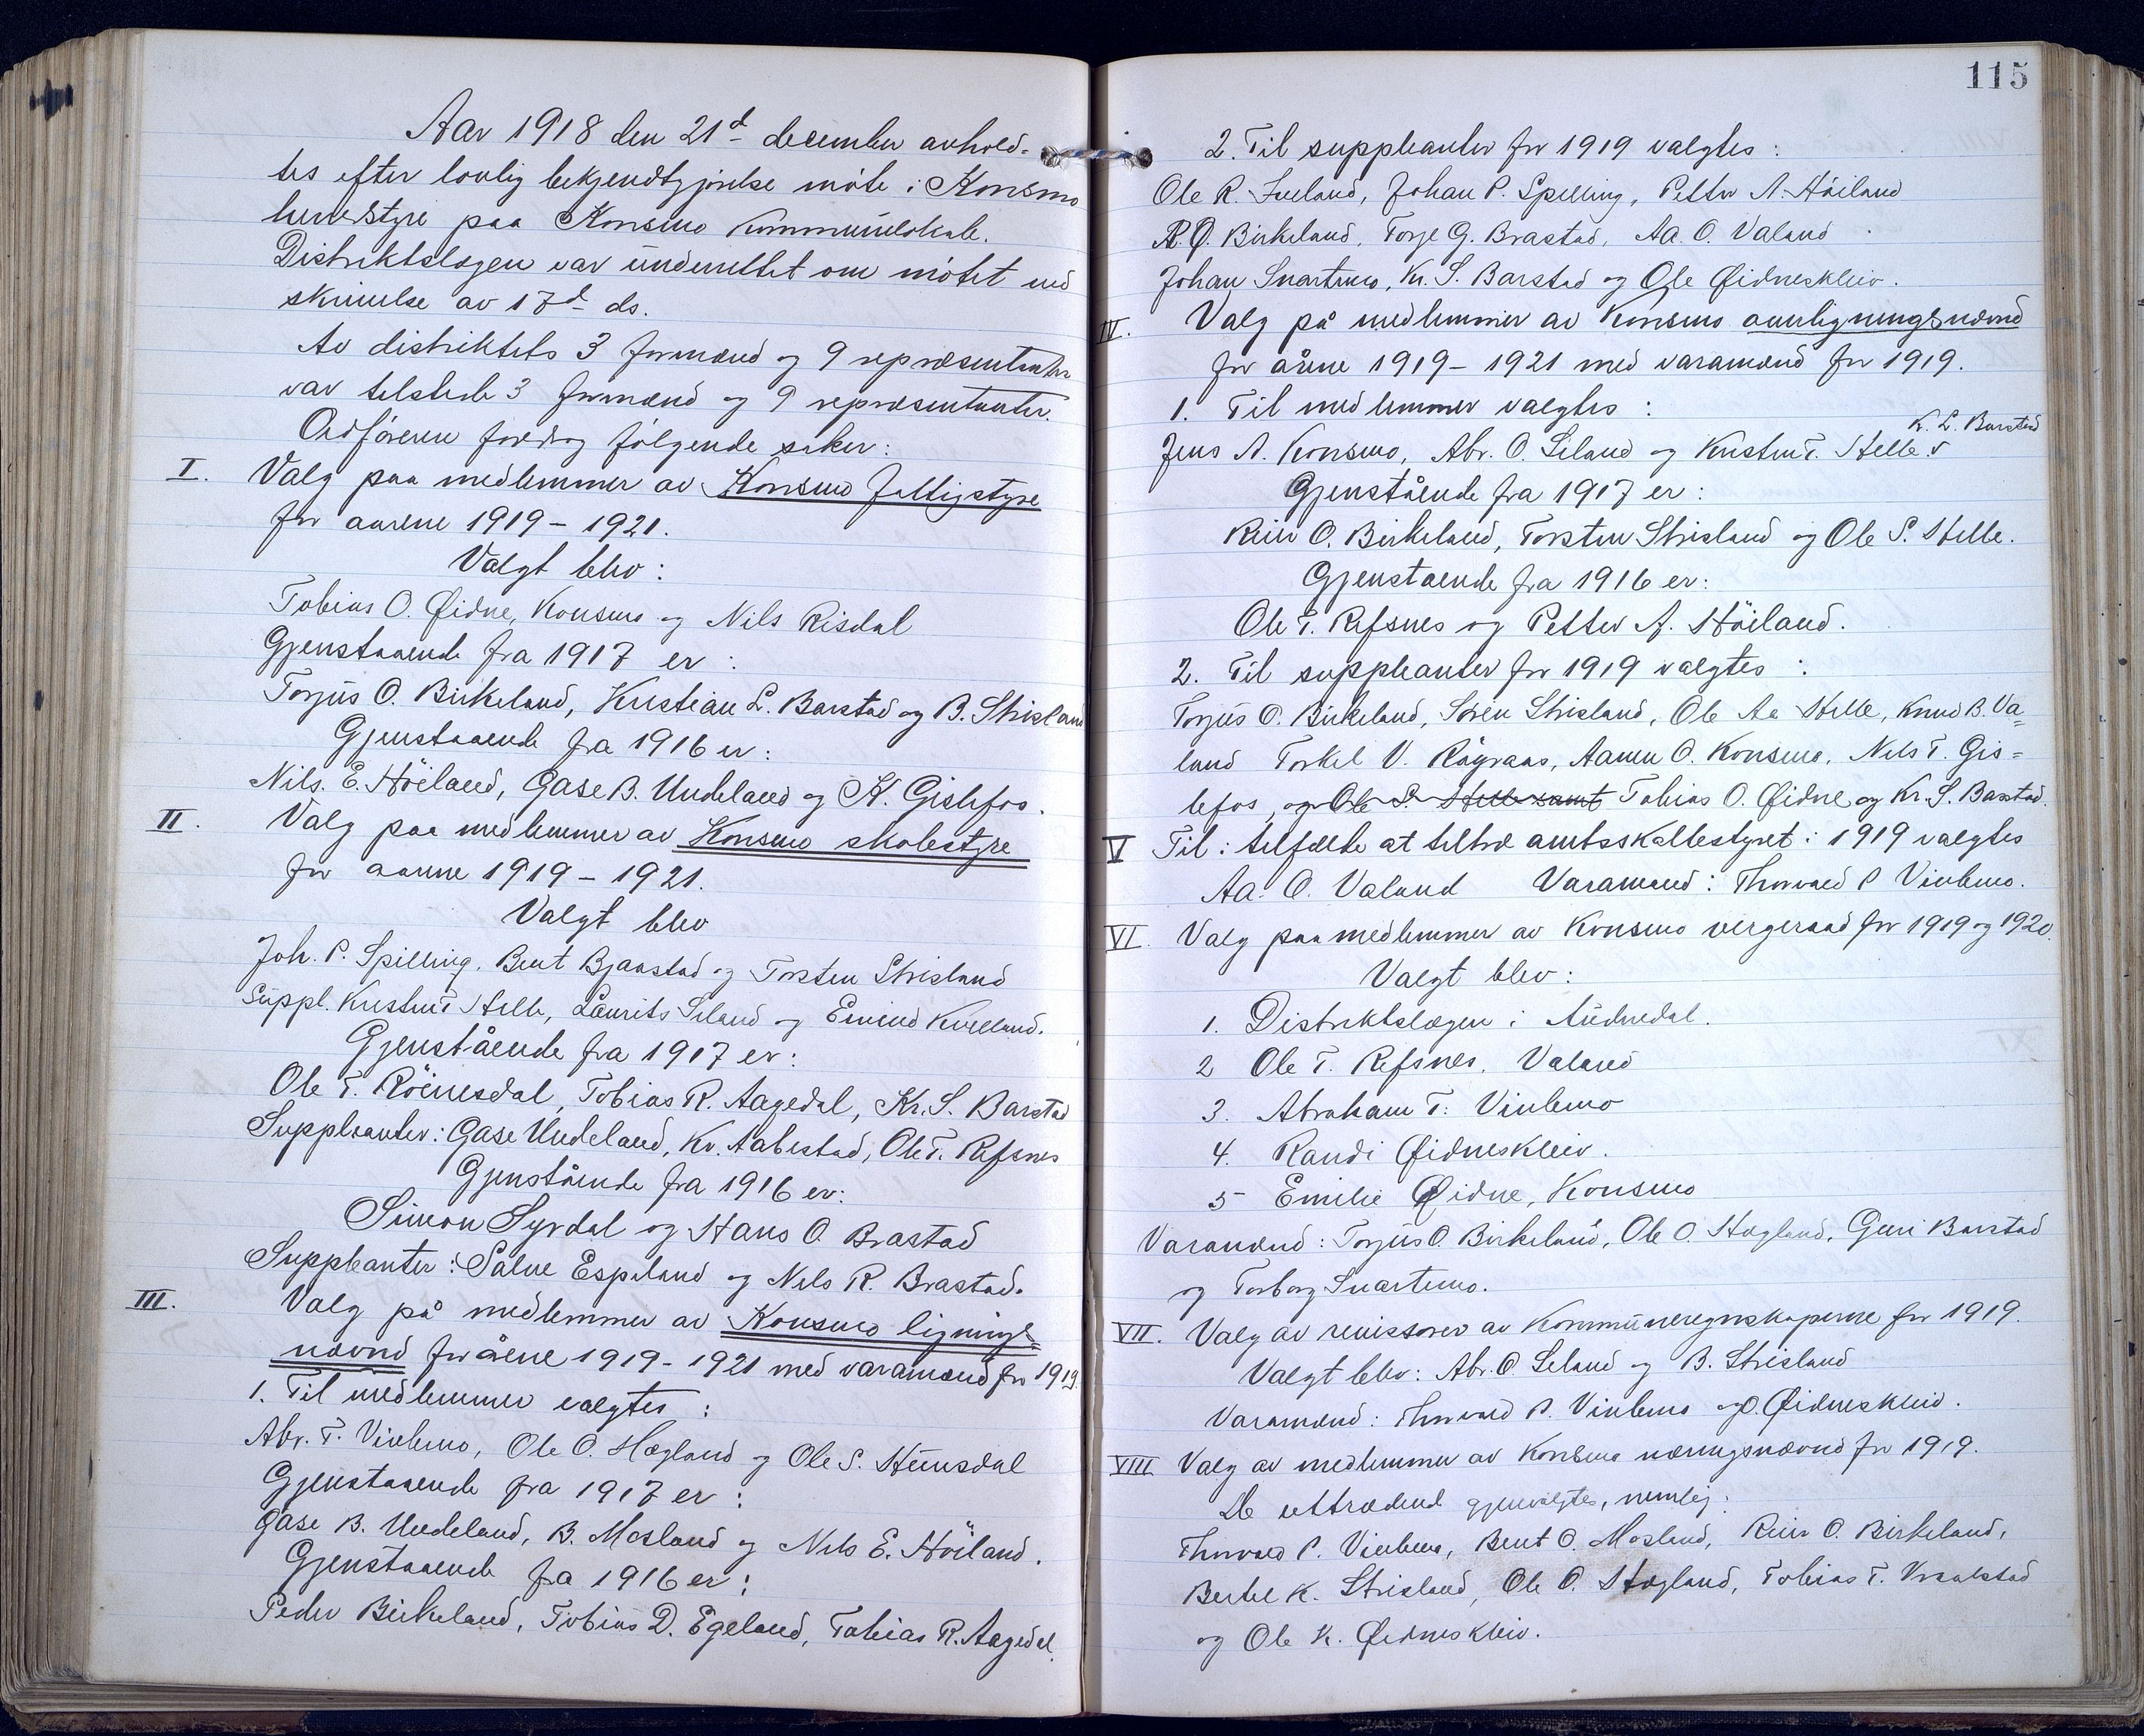 Aar 1918 den 21d december avhold-
tes efter lovlig bekjendtgjörelse möte i Konsmo
herredstyre paa Konsmo kommunelokale.
Distriktslægen var underrettet om mötet ved
skrivelse av 17d ds.
Av distriktets 3 formænd og 9 repræsentanter
var tilstede 3 formænd og 9 repræsentanter.
Ordföreren foredrog fölgende saker:
I. Valg paa medlemmer av Konsmo fattigstyre
for aarene 1919 - 1921.
Valgt blev:
Tobias O. Øidne, Konsmo og Nils Risdal
Gjenstaaende fra 1917 er:
Torjus O. Birkeland, Kristian L. Barstad og B. Strisland
Gjenstaaende fra 1916 er:
Nils. E. Höiland, Gase B. Undeland og K. Gislefos.
II. Valg paa medlemmer av Konsmo skolestyre
for aarene 1919 - 1921.
Valgt blev
Joh. P. Spilling, Bent Bjaastad og Torsten Strisland
Suppl. Kristen T Helle, Laurits Seland og Eivind Kvelland.
Gjenstående fra 1917 er:
Ole T. Röinesdal, Tobias R. Aagedal, Kr. S. Barstad
Suppleanter: Gase Undeland, Kr. Aabestad, Ole T. Refsnes
Gjenstående fra 1916 er:
Simon Syrdal og Hans O. Brastad
Suppleanter: Salve Espeland og Nils R. Brastad.
III. Valg på medlemmer av Konsmo lignings-
nævnd for årene 1919 - 1921 med varamænd for 1919.
1. Til medlemmer valgtes:
Abr. T. Vivlemo, Ole O. Hægland og Ole S. Heimsdal
Gjenstaaende fra 1917 er:
Gase B. Undeland, B. Mosland og Nils E. Höiland.
Gjenstaaende fra 1916 er:
Peder Birkeland, Tobias D. Egeland, Tobias R. Aagedal.
115
2. Til suppleanter for 1919 valgtes:
Ole R. Iveland, Johan P. Spilling, Petter A. Höiland
R. O. Birkeland, Torje G. Brastad, Aa. O. Valand
Johan Snartemo, Kr. S. Barstad og Ole Øidneskleiv.
IV. Valg på medlemmer av Konsmo overligningsnævnd
for årene 1919 - 1921 med varamænd for 1919.
1. Til medlemmer valgtes:
K. L. Barstad
Jens A. Konsmo, Abr. O. Seland og Kristen T. Helle. v
Gjenstående fra 1917 er:
Reier O. Birkeland, Torsten Strisland og Ole S. Helle.
Gjenstaende fra 1916 er:
Ole T. Refsnes og Petter A. Höiland.
2. Til suppleanter for 1919 valgtes:
Torjus O. Birkeland, Sören Strisland, Ole Aa Helle, Knud B. Va=
land Torkel V. Rågvaas, Aanen O. Konsmo, Nils T. Gis=
lefos, og Ole S. Helle samt Tobias O. Øidne og Kr. S. Barstad.
V Til i tilfælde at tiltræ amtsskattestyret i 1919 valgtes
Aa. O. Valand Varamand: Thorvald P Vivlemo.
VI. Valg paa medlemmer av Konsmo vergeraad for 1919 og 1920.
Valgt blev:
1. Distriktslægen i Audnedal.
2 Ole T. Refsnes, Valand
3. Abraham T. Vivlemo
4. Randi Øidneskleiv.
5 Emilie Øidne, Konsmo
Varamænd: Torjus O. Birkeland, Ole O. Hægland, Guri Barstad
og Torborg Snartemo.
VII. Valg av revissorer av Kommuneregnskaperne for 1919.
Valgt blev: Abr. O. Seland og B. Strisland
Varamænd: Thorvald P. Vivlemo og O. Øidneskleiv.
VIII Valg av medlemmer av Konsmo næringsnævnd for 1919.
De uttrædend gjenvalgtes, nemlig:
Thorvald P. Vivlemo, Bent O. Mosland, Reier O. Birkeland,
Bertel K. Strisland, Ole O. Hægland, Tobias T. Vraalstad
og Ole K. Øidneskleiv.